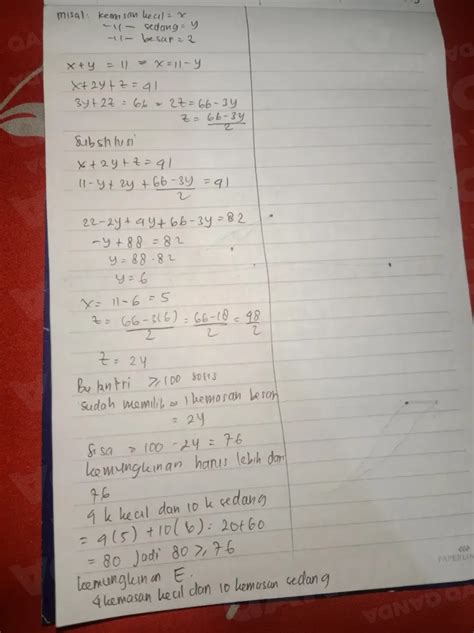 misal: kemasan kecil = x
-11- sedang = y
-11- besar = z
x+y = 11 = x = 11-y
x+2y+z = 41
3y+2z = 66 = 2z = 66-3y
z = 66-3y / 2
Substitusi
x+2y+z = 41
11-y+2y+ 66-3y / 2 = 41
22-2y+4y+66-3y = 82
-y+88 = 82
y = 88-82
y = 6
x = 11-6 = 5
z = 66-3(6) / 2 = 66-18 / 2 = 48 / 2
z = 24
Bu tantri ≥ 100 sosis
sudah memilih = 1 kemasan besar
= 24
Sisa = 100 - 24 = 76
kemungkinan harus lebih dari
76
4 k kecil dan 10 k sedang
= 4(5) + 10(6) = 20+60
= 80 Jadi 80 ≥ 76
kemungkinan E.
4 kemasan kecil dan 10 kemasan sedang
PAPERLINE